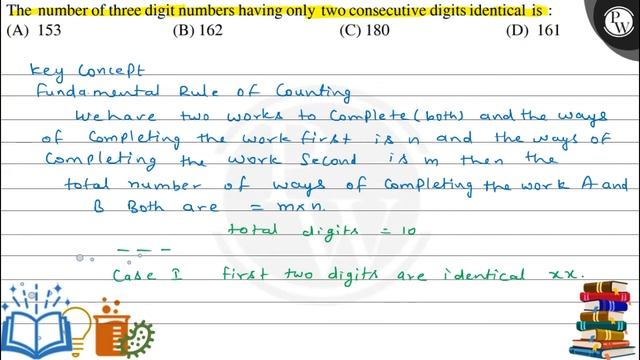 The number of three digit numbers having only two consecutive digits identical is :
(A) 153 (B) 162 (C) 180 (D) 161
PW
Key Concept
Fundamental Rule of Counting
We have two works to complete (both) and the ways
of completing the work first is n and the ways of
completing the work second is m then the
total number of ways of completing the work A and
B Both are = m×n.
total digits = 10
Case I first two digits are identical xx.